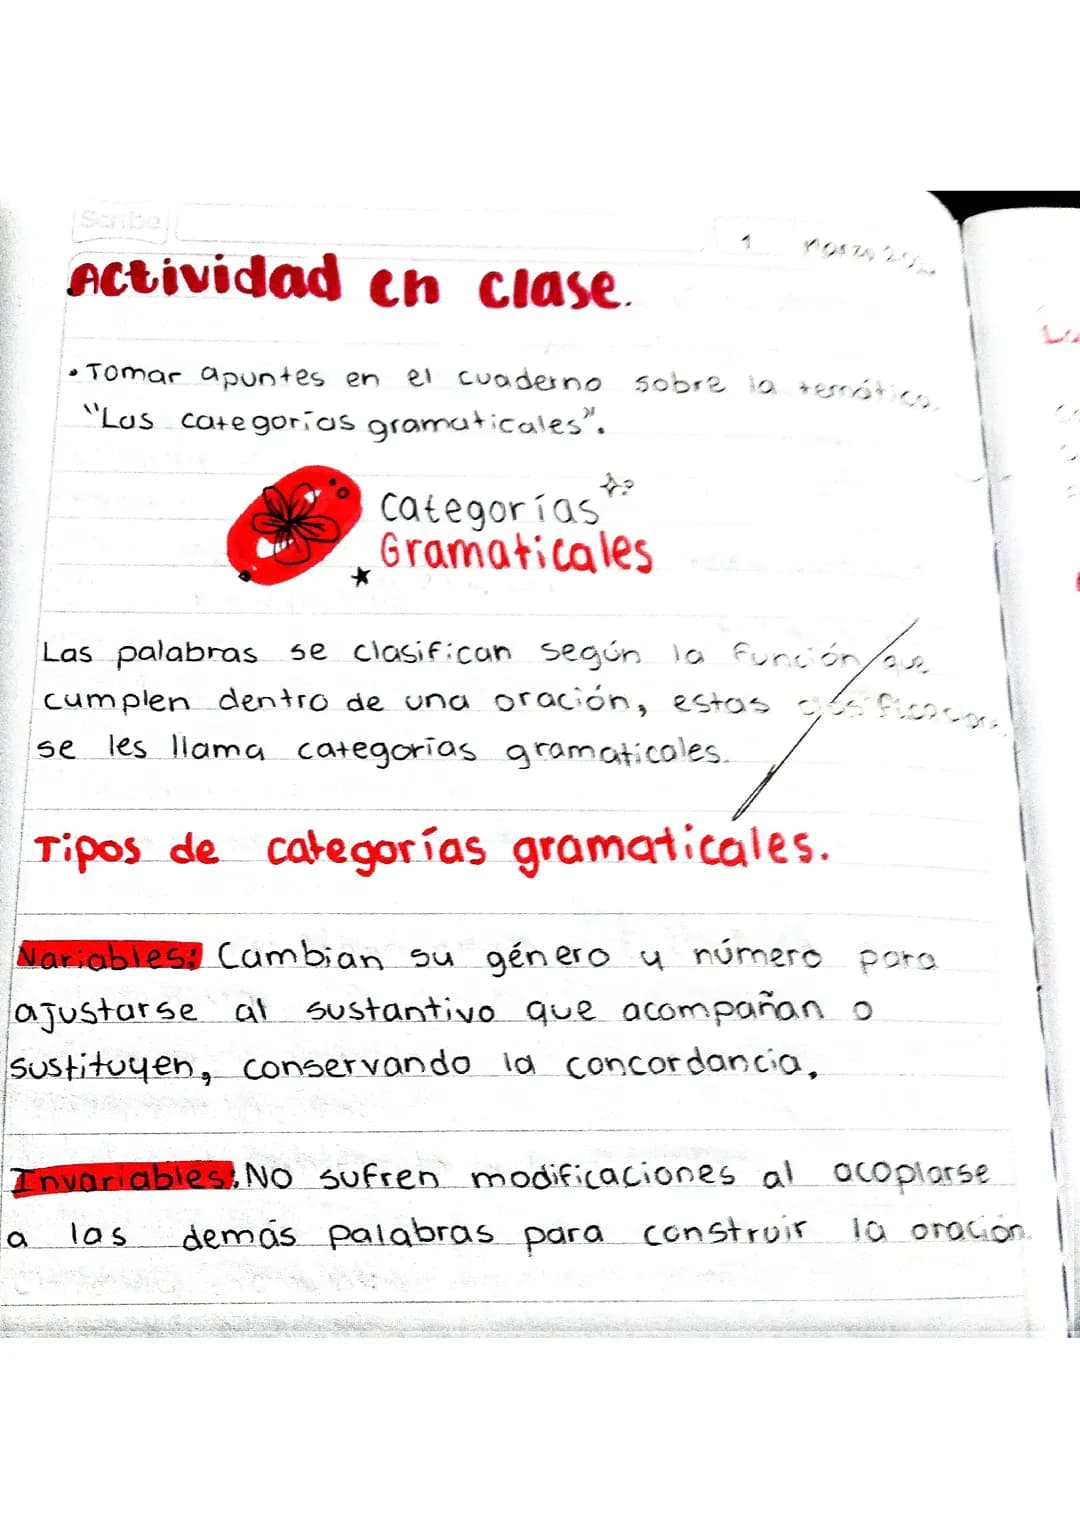 Scribe
1 Marzo
Actividad en clase.
• Tomar apuntes en el cuaderno sobre la temática.
"Las categorías gramaticales".
Categorías
Gramaticales
Las palabras se clasifican según la función que
cumplen dentro de una oración, estas
se les llama categorías gramaticales.
Tipos de categorías gramaticales.
Variables: Cambian su género y número para
ajustarse al sustantivo que acompañan o
sustituyen, conservando la concordancia.
Invariables: No sufren modificaciones al acoplarse
a las demás palabras para construir la oración.